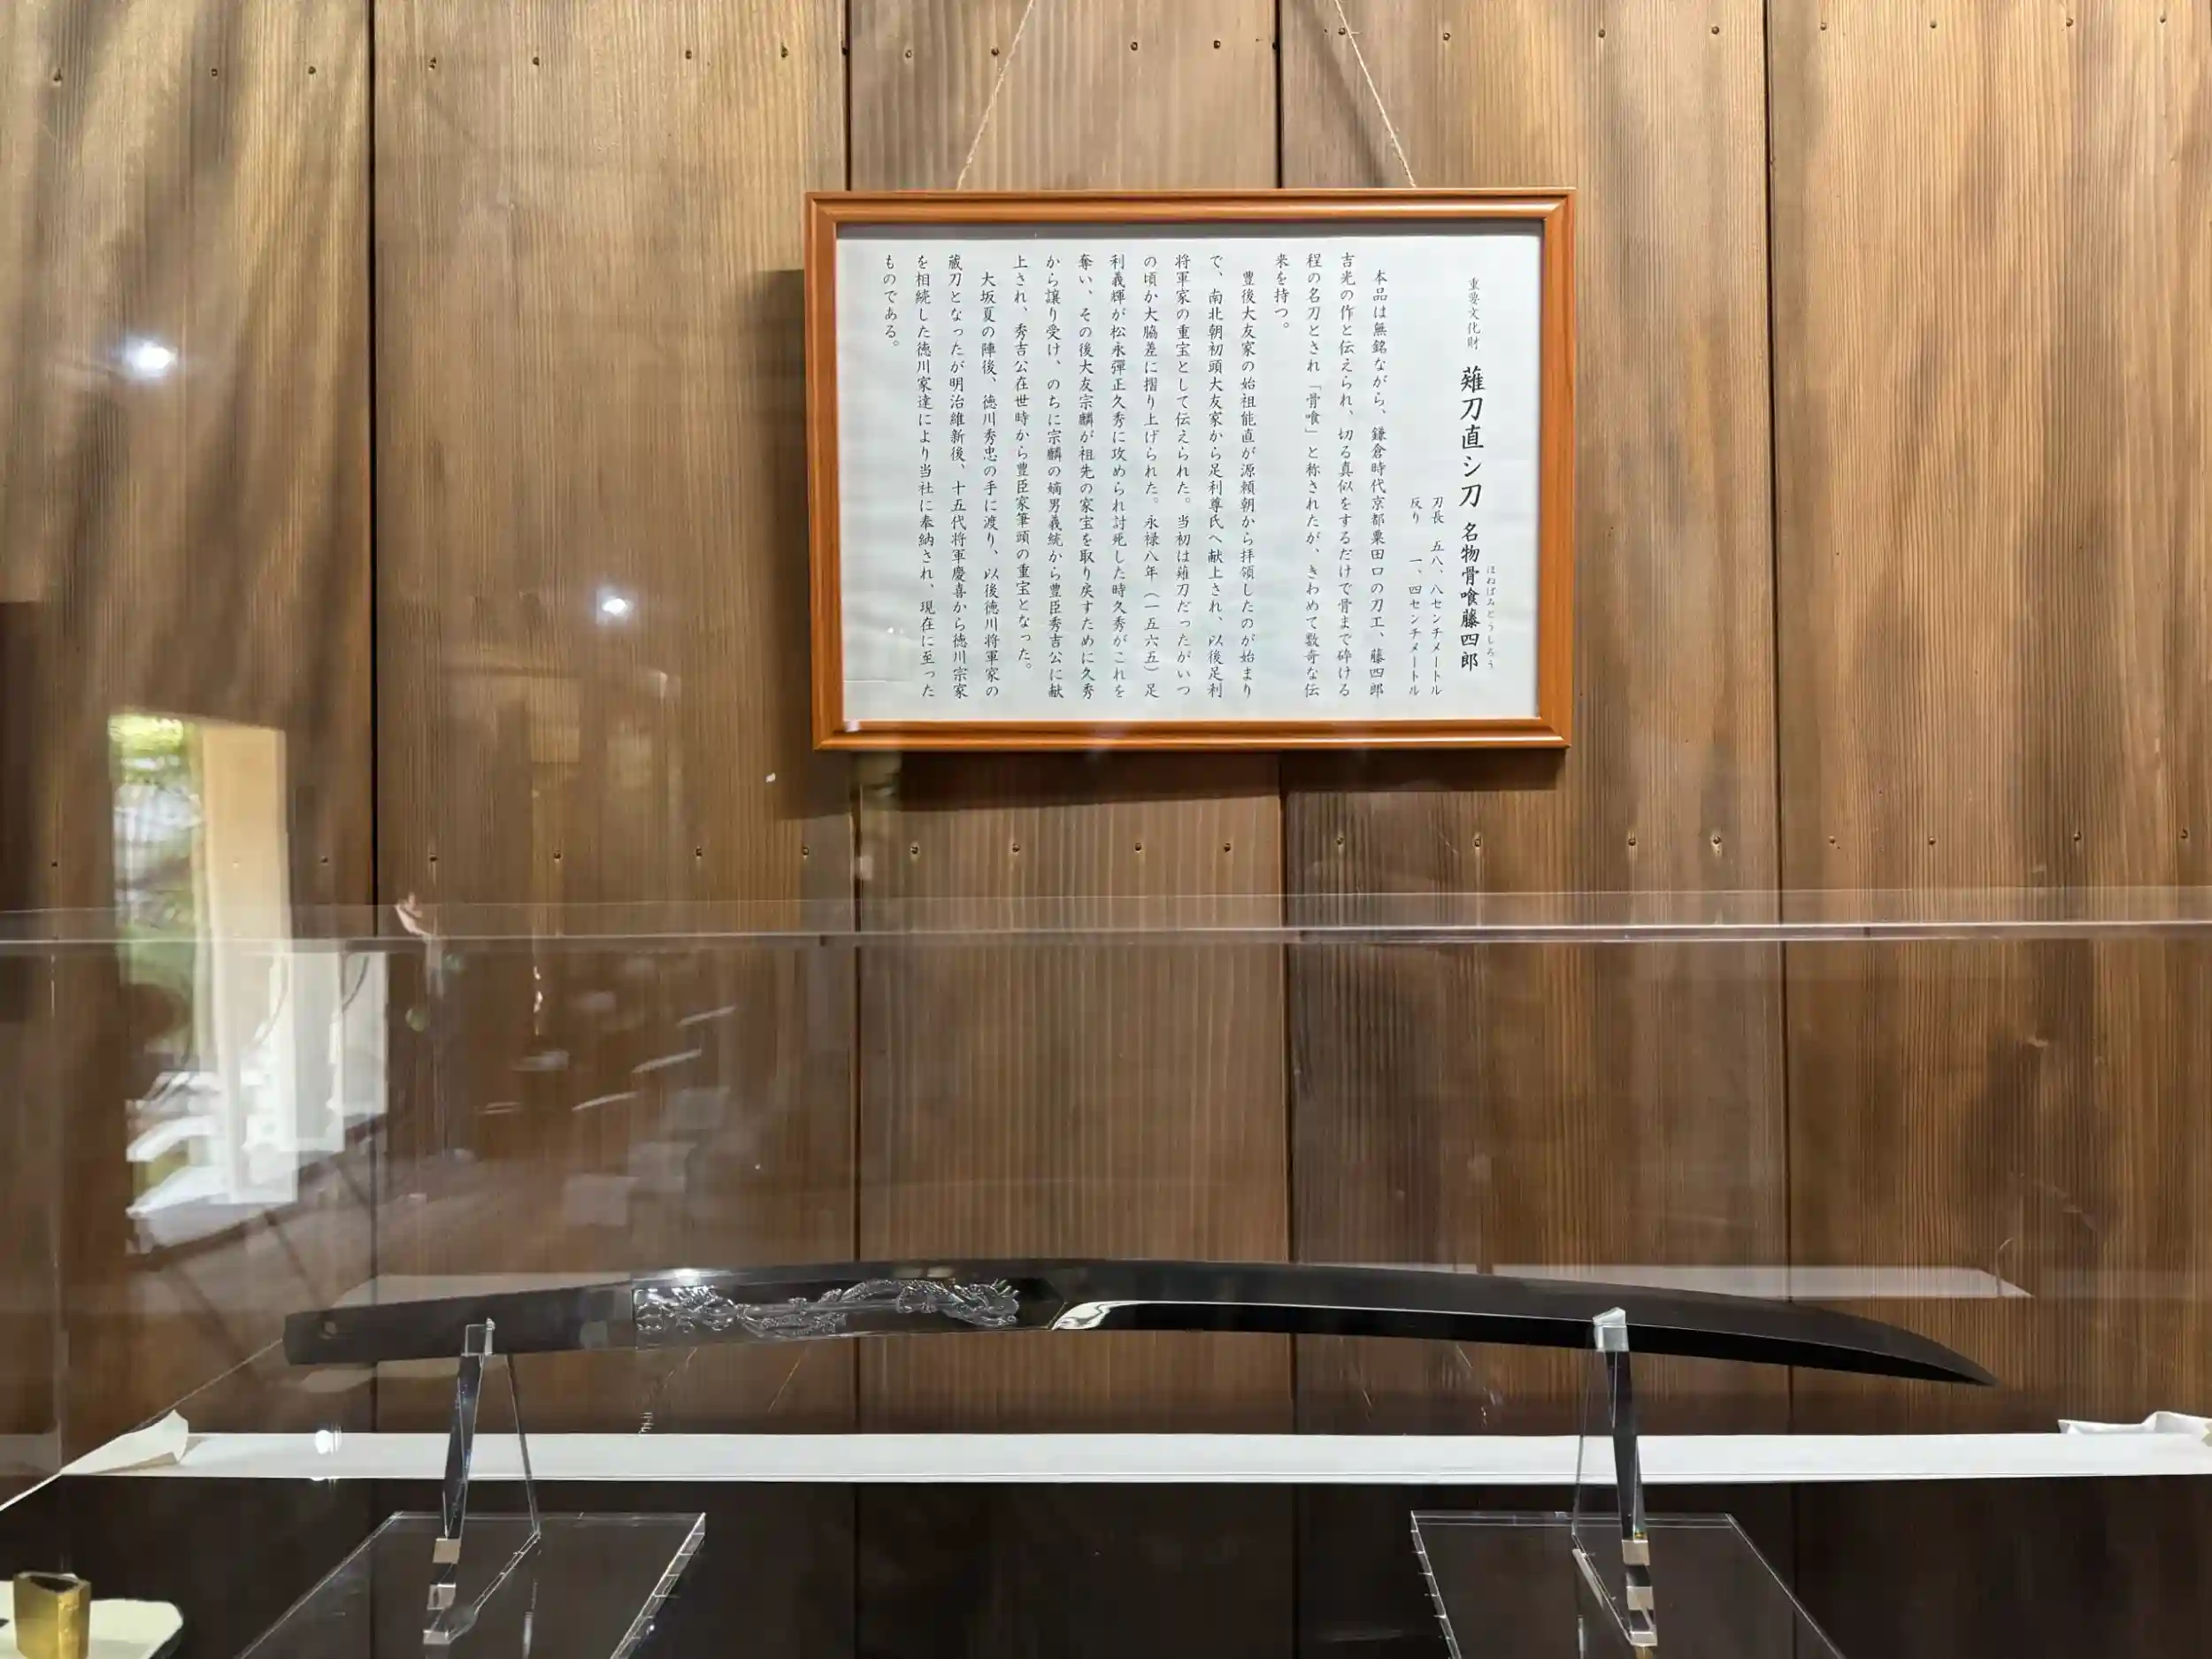 重要文化財 薙刀直シ刀 名物骨喰藤四郎
ほねばみとうしろう
刃長 五八、八センチメートル
反り 一、四センチメートル
本品は無銘ながら、鎌倉時代京都粟田口の刀工、藤四郎
吉光の作と伝えられ、切る真似をするだけで骨まで砕ける
程の名刀とされ「骨喰」と称されたが、きわめて数奇な伝
来を持つ。
豊後大友家の始祖能直が源頼朝から拝領したのが始まり
で、南北朝初頭大友家から足利尊氏へ献上され、以後足利
将軍家の重宝として伝えられた。当初は薙刀だったがいつ
の頃か大脇差に摺り上げられた。永禄八年(一五六五)足
利義輝が松永彈正久秀に攻められ討死した時久秀がこれを
奪い、その後大友宗麟が祖先の家宝を取り戻すために久秀
から譲り受け、のちに宗麟の嫡男義統から豊臣秀吉公に献
上され、秀吉公在世時から豊臣家筆頭の重宝となった。
大坂夏の陣後、徳川秀忠の手に渡り、以後徳川将軍家の
蔵刀となったが明治維新後、十五代将軍慶喜から徳川宗家
を相続した徳川家達により当社に奉納され、現在に至った
ものである。